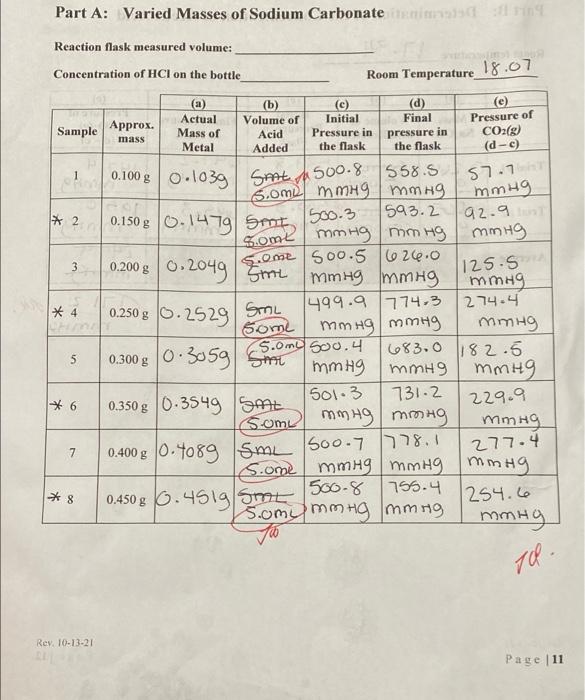 Part A: Varied Masses of Sodium Carbonate
Reaction flask measured volume:
Concentration of HCl on the bottle Room Temperature 18.07
Sample Approx. mass (a) Actual Mass of Metal (b) Volume of Acid Added (c) Initial Pressure in the flask (d) Final pressure in the flask (e) Pressure of CO2(g) (d – c)
1 0.100 g 0.103g 5mL 5.0mL 500.8 mmHg 558.5 mmHg 57.7 mmHg
* 2 0.150 g 0.147g 5mL 5.0mL 500.3 mmHg 593.2 mmHg 92.9 mmHg
3 0.200 g 0.204g 5.0mL 5mL 500.5 mmHg 626.0 mmHg 125.5 mmHg
* 4 0.250 g 0.252g 5mL 5.0mL 499.9 mmHg 774.3 mmHg 274.4 mmHg
5 0.300 g 0.305g 5.0mL 5mL 500.4 mmHg 683.0 mmHg 182.5 mmHg
* 6 0.350 g 0.354g 5mL 5.0mL 501.3 mmHg 731.2 mmHg 229.9 mmHg
7 0.400 g 0.408g 5mL 5.0mL 500.7 mmHg 778.1 mmHg 277.4 mmHg
* 8 0.450 g 0.451g 5mL 5.0mL 500.8 mmHg 755.4 mmHg 254.6 mmHg
Rev. 10-13-21
Page | 11